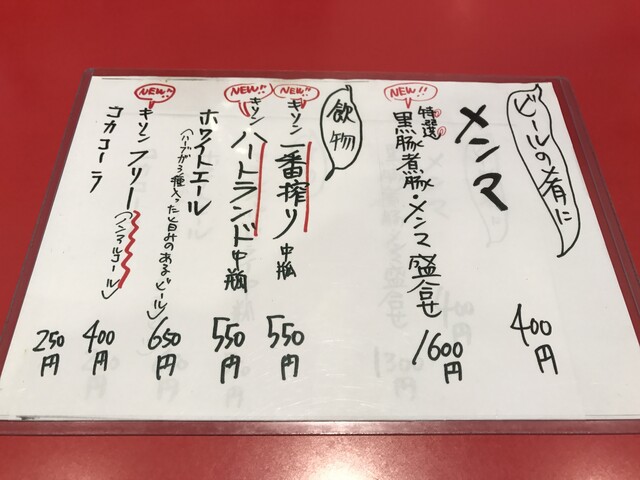 ビールの肴に
メンマ 400円
NEW!!
特選 黒豚煮豚・メンマ盛合せ 1600円
飲物
NEW!!
キリン 一番搾り 中瓶 550円
NEW!!
キリン ハートランド 中瓶 550円
ホワイトエール 650円
(ハーブが3種入った旨みのあるビール)
NEW!!
キリンフリー(ノンアルコール) 400円
コカコーラ 250円